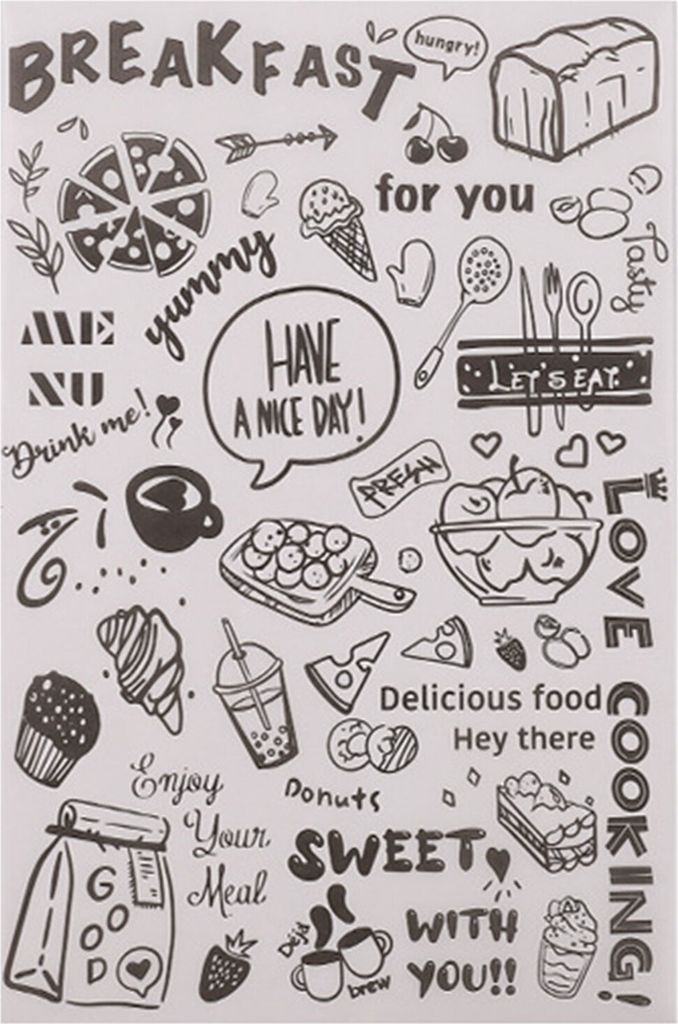 BREAKFAST
hungry!
for you
Tasty
yummy
ME
NU
HAVE
A NICE DAY!
LET'S EAT.
Drink me!
FRESH
LOVE COOKING!
Delicious food
Hey there
Enjoy
Your
Meal
Donuts
SWEET
WITH
YOU!!
GOOD
Deja
brew